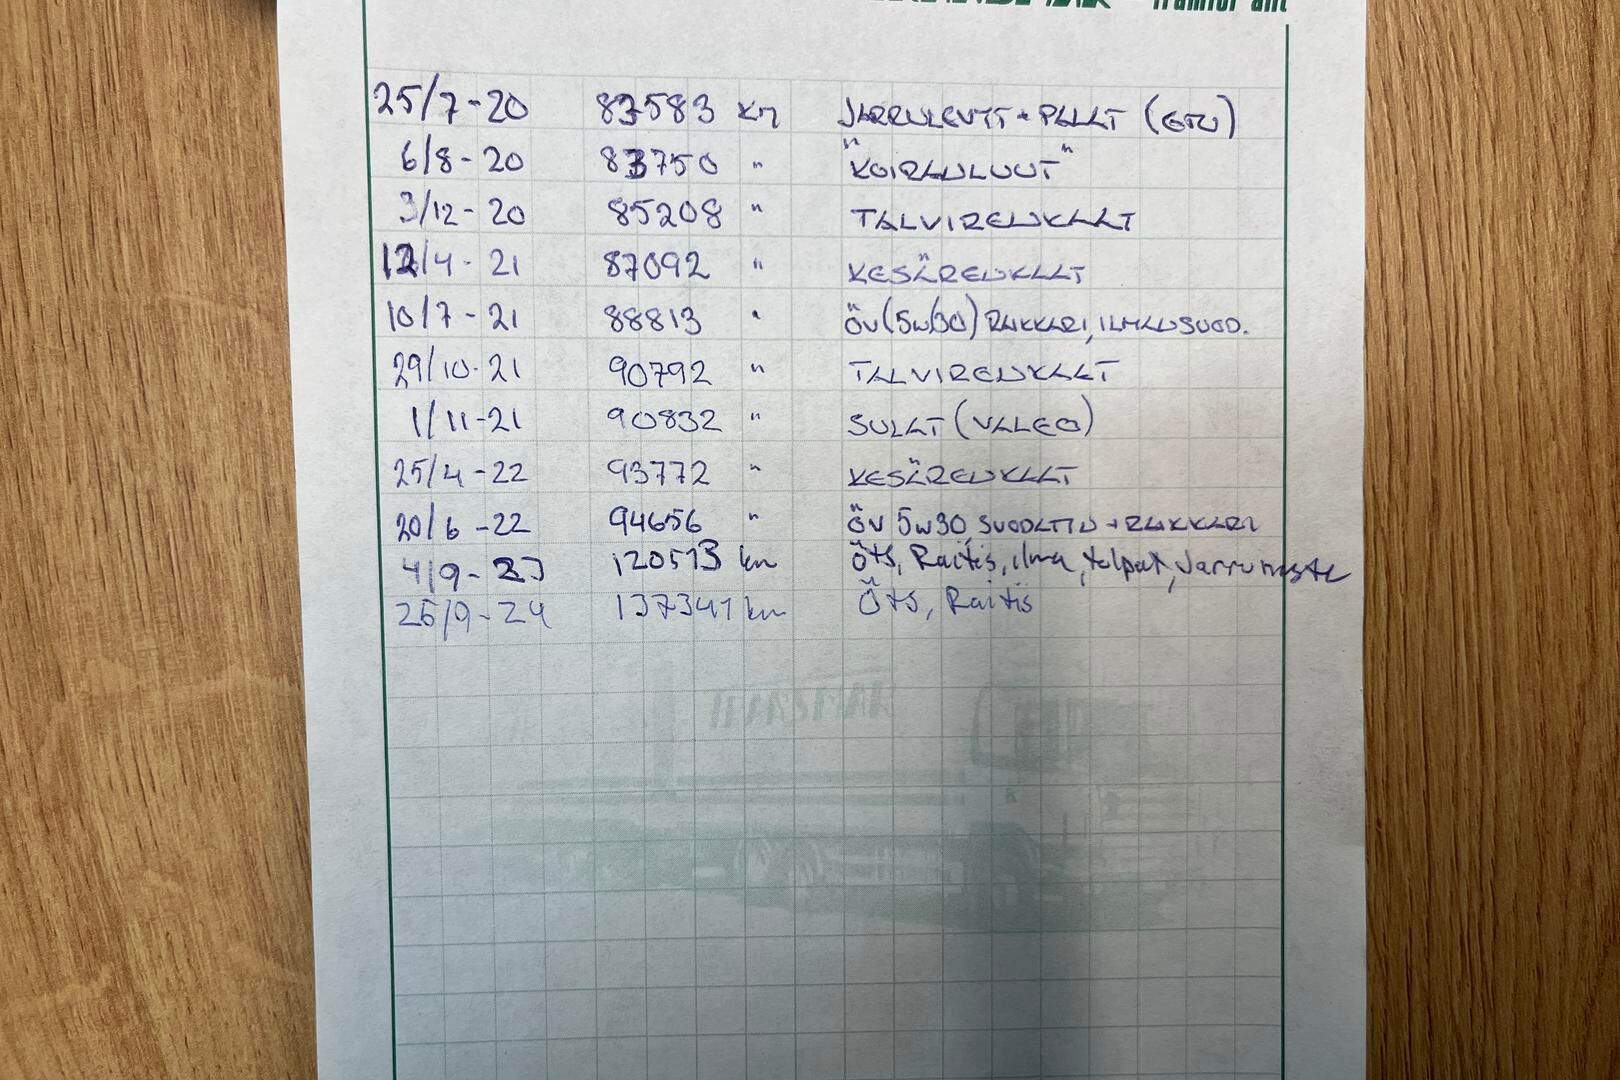 25/7-20 83583 km JARRULEVYT + PALAT (ETU)
6/8-20 83750 " "KOIRANLUUT"
3/12-20 85208 " TALVIRENKAAT
12/4-21 87092 " KESÄRENKAAT
10/7-21 88813 " ÖV (5W30) RAIKKARI, ILMANSUOD.
29/10-21 90792 " TALVIRENKAAT
1/11-21 90832 " SULAT (VALEO)
25/4-22 93772 " KESÄRENKAAT
20/6-22 94656 " ÖV 5W30, SUODATIN + RAIKKARI
4/9-23 120513 km Öts, Raitis, ilma, tulpat, Jarruneste
25/9-24 137341 km Öts, Raitis